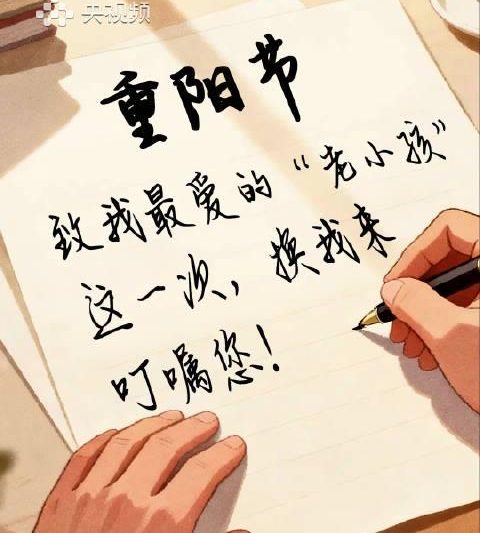 央视频
重阳节
致我最爱的“老小孩”
这一次，换我来
叮嘱您！